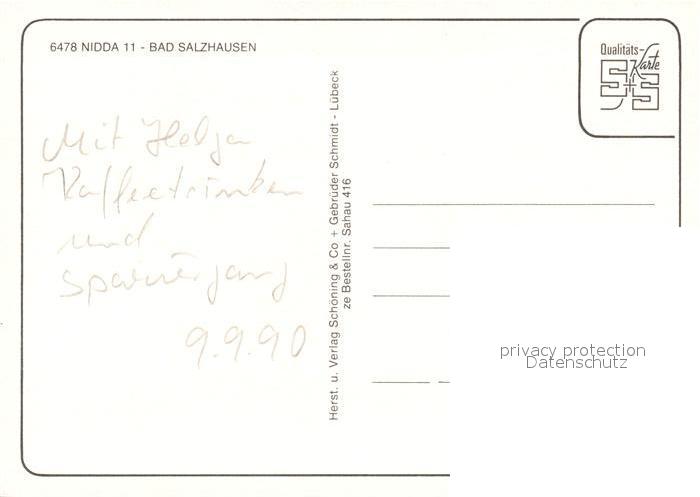 6478 NIDDA 11 - BAD SALZHAUSEN
Qualitäts-
Karte
S+S
Mit Helga
Kaffeetrinken
und
Spaziergang
9.9.90
Herst. u. Verlag Schöning & Co + Gebrüder Schmidt - Lübeck
ze Bestellnr. Sahau 416
privacy protection
Datenschutz